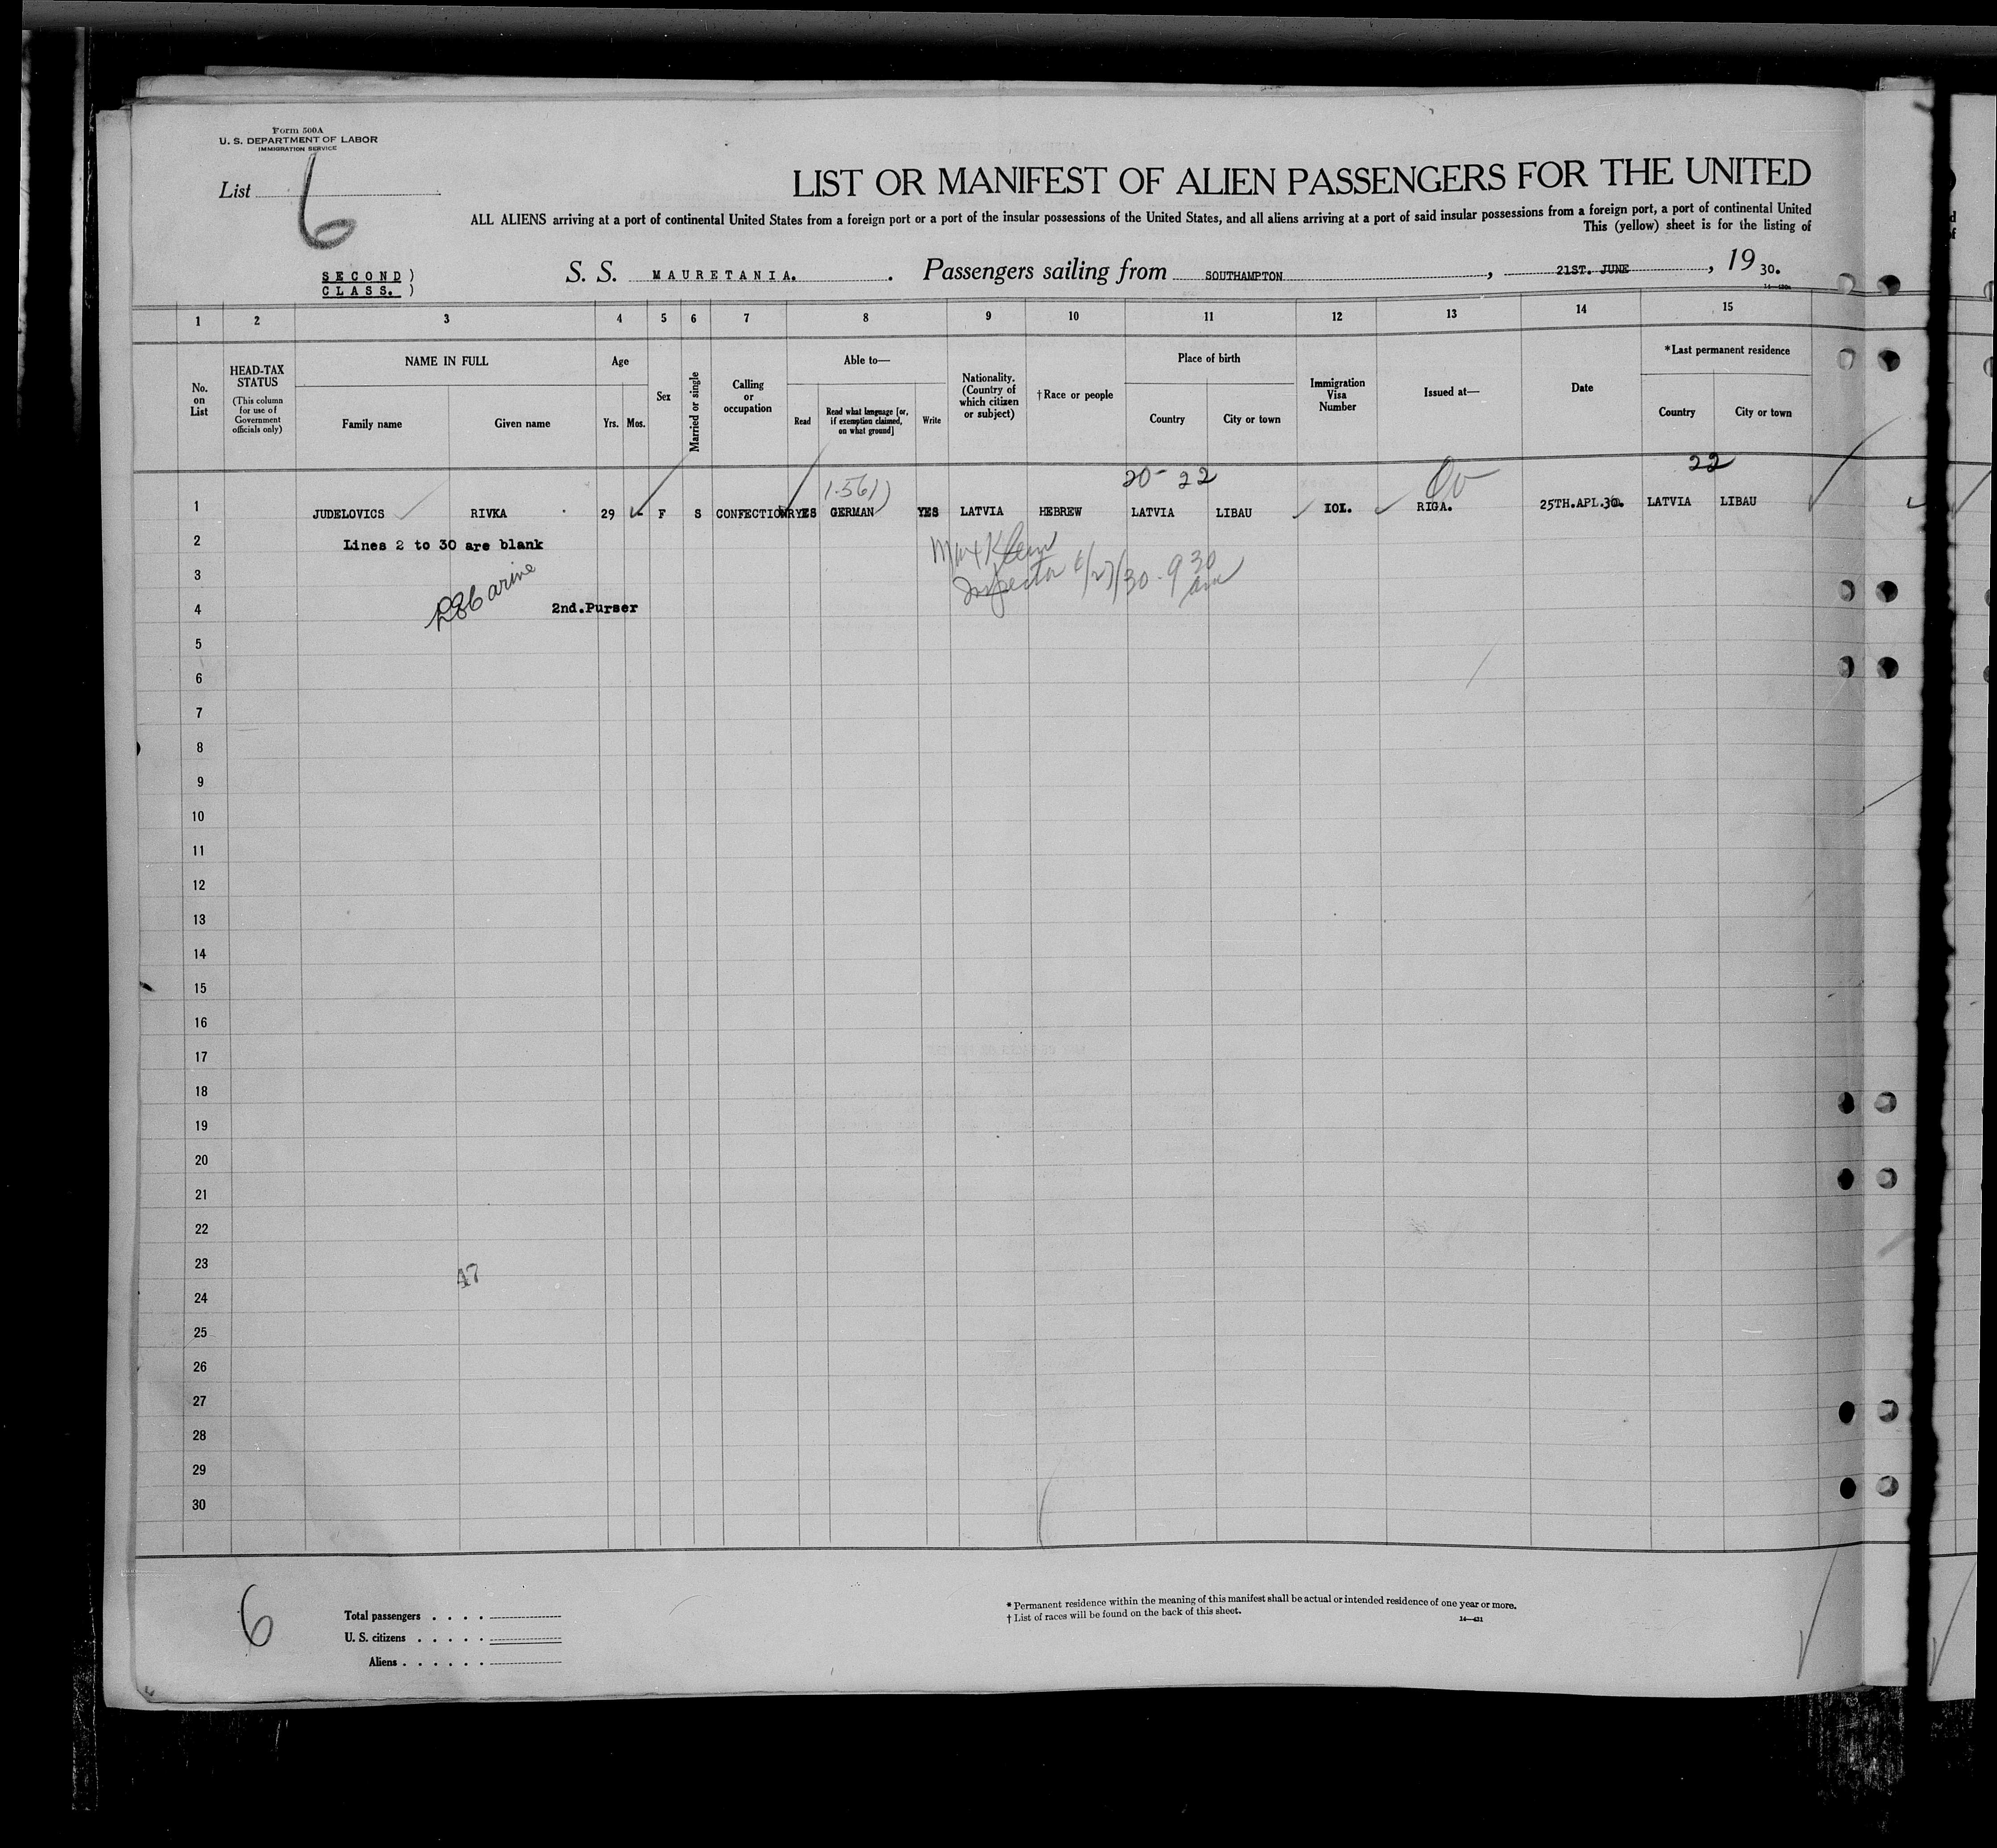 Form 500A
U. S. DEPARTMENT OF LABOR
IMMIGRATION SERVICE
List 6
LIST OR MANIFEST OF ALIEN PASSENGERS FOR THE UNITED
ALL ALIENS arriving at a port of continental United States from a foreign port or a port of the insular possessions of the United States, and all aliens arriving at a port of said insular possessions from a foreign port, a port of continental United
This (yellow) sheet is for the listing of
SECOND )
CLASS. )
S. S. MAURETANIA. . Passengers sailing from SOUTHAMPTON , 21ST. JUNE , 19 30.
1 2 3 4 5 6 7 8 9 10 11 12 13 14 15
No. on List
HEAD-TAX STATUS
(This column for use of Government officials only)
NAME IN FULL
Family name Given name
Age
Yrs. Mos.
Sex
Married or single
Calling or occupation
Able to—
Read
Read what language [or, if exemption claimed, on what ground]
Write
Nationality. (Country of which citizen or subject)
† Race or people
Place of birth
Country City or town
Immigration Visa Number
Issued at—
Date
*Last permanent residence
Country City or town
20- 22 22
1 JUDELOVICS RIVKA 29 - F S CONFECTIONRY YES GERMAN YES LATVIA HEBREW LATVIA LIBAU IOI. RIGA. 25TH.APL.30. LATVIA LIBAU
2 Lines 2 to 30 are blank
Max Klein
3 Inspector 6/27/30 - 9 30 am
4 2nd.Purser
5
6
7
8
9
10
11
12
13
14
15
16
17
18
19
20
21
22
23
47
24
25
26
27
28
29
30
6
Total passengers . . . .
U. S. citizens . . . . .
Aliens . . . . . .
* Permanent residence within the meaning of this manifest shall be actual or intended residence of one year or more.
† List of races will be found on the back of this sheet.
14—421